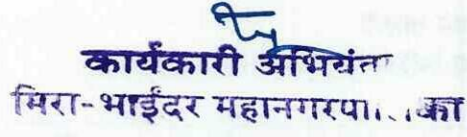 कार्यकारी अभियंता
मिरा-भाईंदर महानगरपा...का